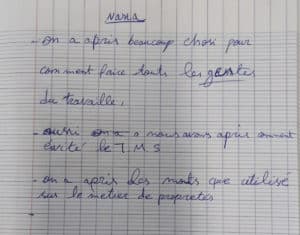 Nasia
- on a apris beaucoup chosi pour
comment faire touts les gestes
du travaille,
- aussi on a nous avons apris comment
évité le T.M.S
- on a apris des mots que utilisé
sur le métier de propretés